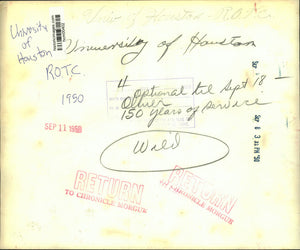 Univ of Houston - R.O.T.C.
University
of
Houston
R.O.T.C.
1950
University of Houston
4
Optional til Sept 18
150 years of service
SEP 11 1950
Wald
RETURN
TO CHRONICLE MORGUE
RETURN
TO CHRONICLE MORGUE